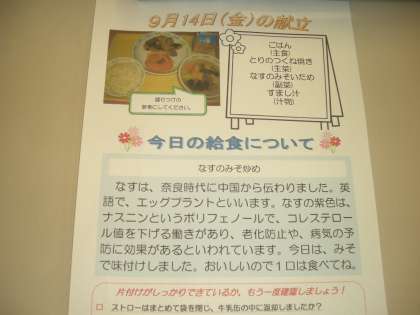 9月14日(金)の献立
ごはん
(主食)
とりのつくね焼き
(主菜)
なすのみそいため
(副菜)
すまし汁
(汁物)
盛りつけの
参考にしてください。
今日の給食について
なすのみそ炒め
なすは、奈良時代に中国から伝わりました。英
語で、エッグプラントといいます。なすの紫色は、
ナスニンというポリフェノールで、コレステロー
ル値を下げる働きがあり、老化防止や、病気の予
防に効果があるといわれています。今日は、みそ
で味付けしました。おいしいので1口は食べてね。
片付けがしっかりできているか、もう一度確認しましょう!
□ ストローはまとめて袋を閉じ、牛乳缶の中に返却しましたか?